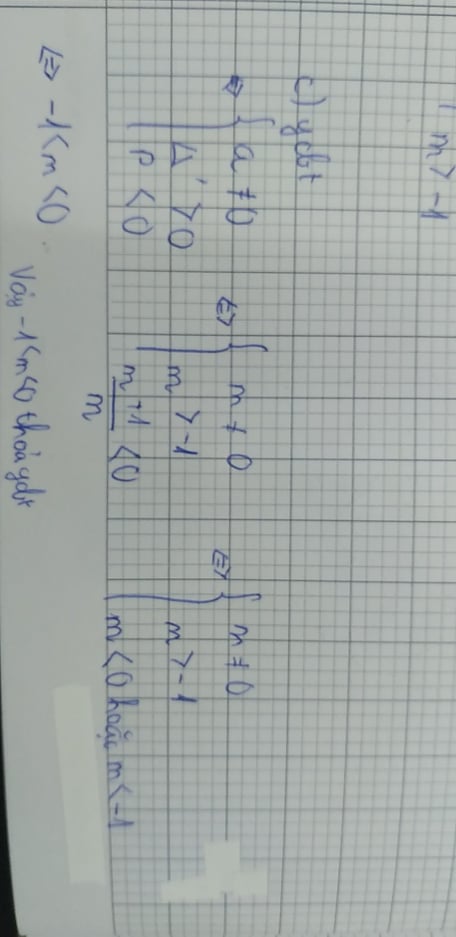 m > -1
c) ycbt
⇔ { a ≠ 0 ⇔ { m ≠ 0 ⇔ { m ≠ 0
Δ' > 0 m > -1 m > -1
P < 0 m+1/m < 0 m < 0 hoặc m < -1
⇔ -1 < m < 0
Vậy -1<m<0 thoả ycbt